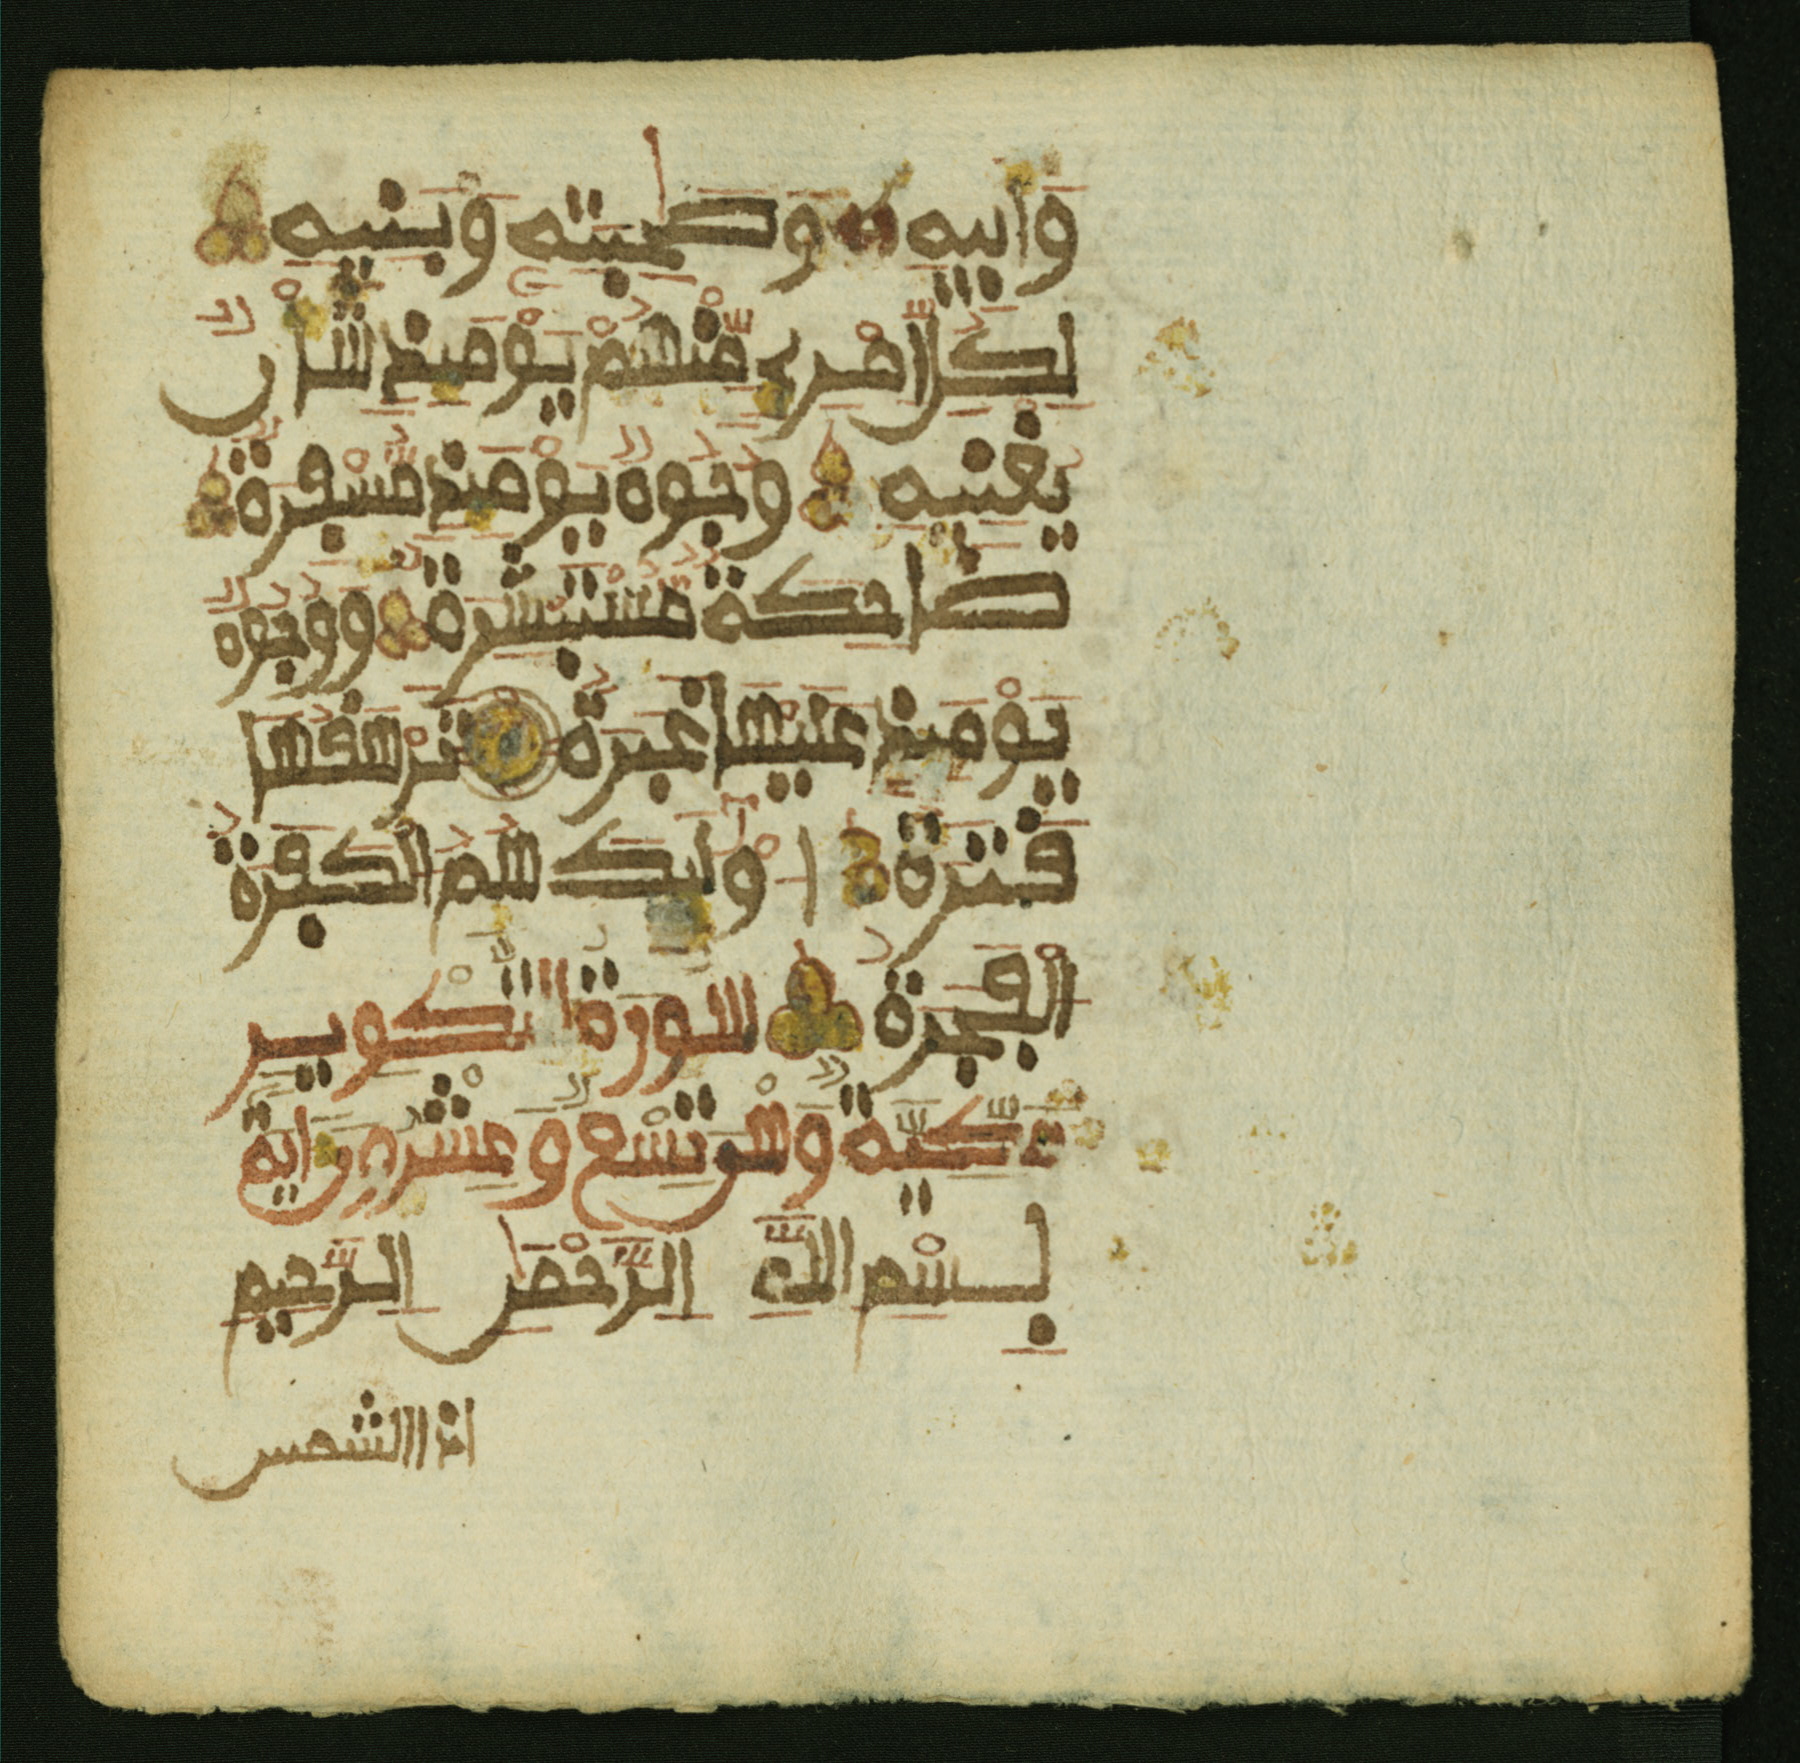 وَأَبِيهِ وَصَٰحِبَتِهِ وَبَنِيهِ
لِكُلِّ اِمْرِئٍ مِّنْهُمْ يَوْمَئِذٍ شَأْنٌ
يُغْنِيهِ وُجُوهٌ يَوْمَئِذٍ مُّسْفِرَةٌ
ضَاحِكَةٌ مُّسْتَبْشِرَةٌ وَوُجُوهٌ
يَوْمَئِذٍ عَلَيْهَا غَبَرَةٌ تَرْهَقُهَا
قَتَرَةٌ أُوْلَٰئِكَ هُمُ الْكَفَرَةُ
الْفَجَرَةُ سورة التَّكْوِيرِ
مَكِّيَّةٌ وَهْيَ تِسْعٌ وَعِشْرُونَ ءَايَةً
بِسْمِ اللَّهِ الرَّحْمَٰنِ الرَّحِيمِ
اذا الشمس